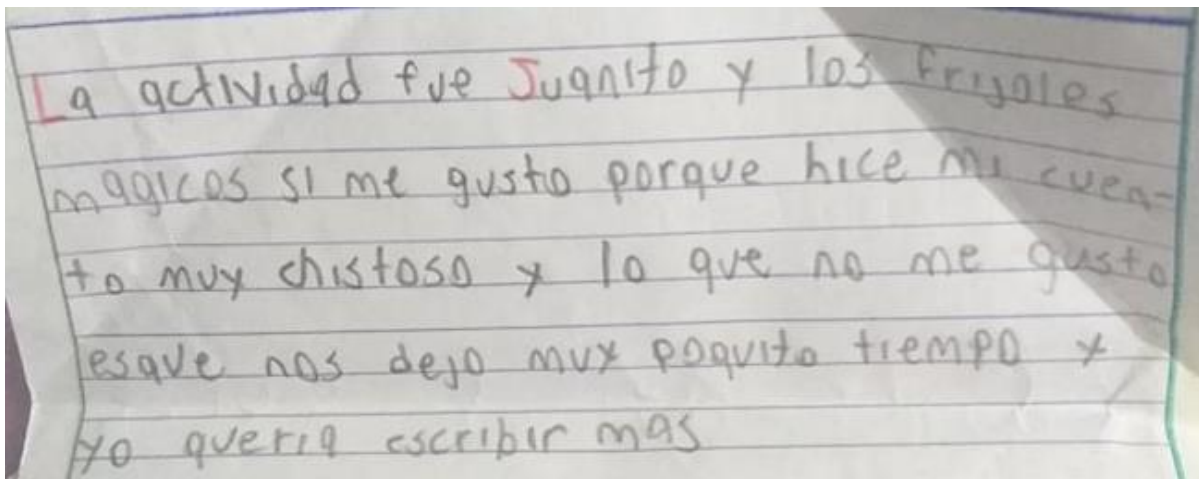 La actividad fue Juanito y los frijoles
magicos si me gusto porque hice mi cuen-
to muy chistoso y lo que no me gusto
esque nos dejo muy poquito tiempo y
yo queria escribir mas